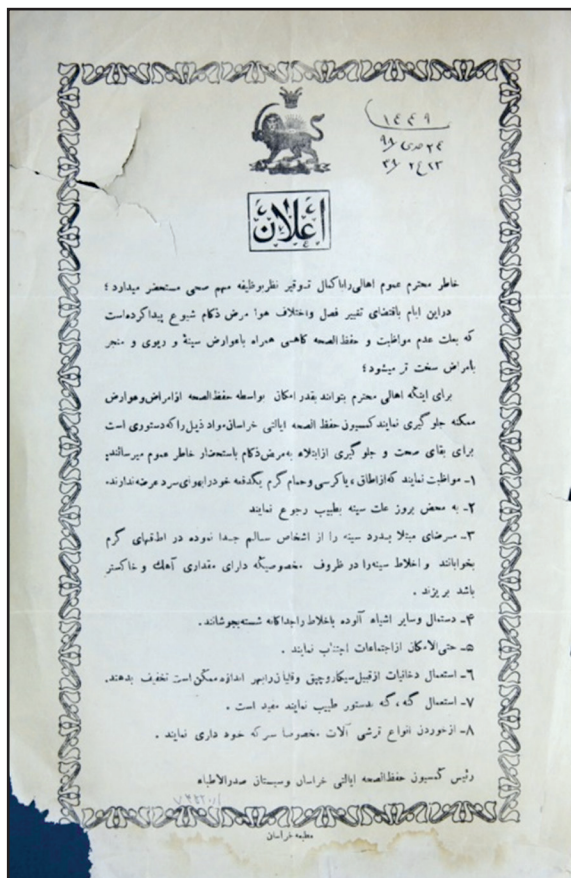 ۱۴۴۹
۲۴ جدی ۹۸
۲۳ ع ۲ ۳۷
اعلان
خاطر محترم عموم اهالی را با کمال توقیر نظر بوظیفه مهم صحی مستحضر میدارد ؛
دراین ایام باقتضای تغییر فصل واختلاف هوا مرض ذکام شیوع پیدا کرده است
که بعلت عدم مواظبت و حفظ الصحه کاهی همراه باعوارض سینهٔ و ریوی و منجر
بامراض سخت تر میشود ؛
برای اینکه اهالی محترم بتوانند بقدر امکان بواسطه حفظ الصحه ازامراض وعوارض
ممکنه جلو گیری نمایند کمسیون حفظ الصحه ایالتی خراسان مواد ذیل را که دستوری است
برای بقای صحت و جلو گیری ازابتلاء به مرض ذکام باستحضار خاطر عموم میرسانند:
۱ـ مواظبت نمایند که از اطاق ، یا کرسی و حمام گرم یکدفعه خود را بهوای سرد عرضه ندارند.
۲ـ به محض بروز علت سینه بطبیب رجوع نمایند
۳ـ مرضای مبتلا بدرد سینه را از اشخاص سالم جدا نموده در اطاقهای گرم
بخوابانند و اخلاط سینه را در ظروف مخصوصیکه دارای مقداری آهك و خاکستر
باشد بریزند .
۴ـ دستمال وسایر اشیاء آلوده باخلاط را جداکانه شسته بجوشانند .
۵ـ حتی الامکان ازاجتماعات اجتناب نمایند .
۶ـ استعمال دخانیات ازقبیل سیکار و چپق وقلیان را بهر اندازه ممکن است تخفیف بدهند.
۷ـ استعمال گنه ، گنه بدستور طبیب نمایند مفید است .
۸ـ ازخوردن انواع ترشی آلات مخصوصا سرکه خود داری نمایند .
رئیس کمسیون حفظ الصحه ایالتی خراسان وسیستان صدرالاطباء
مطبعه خراسان